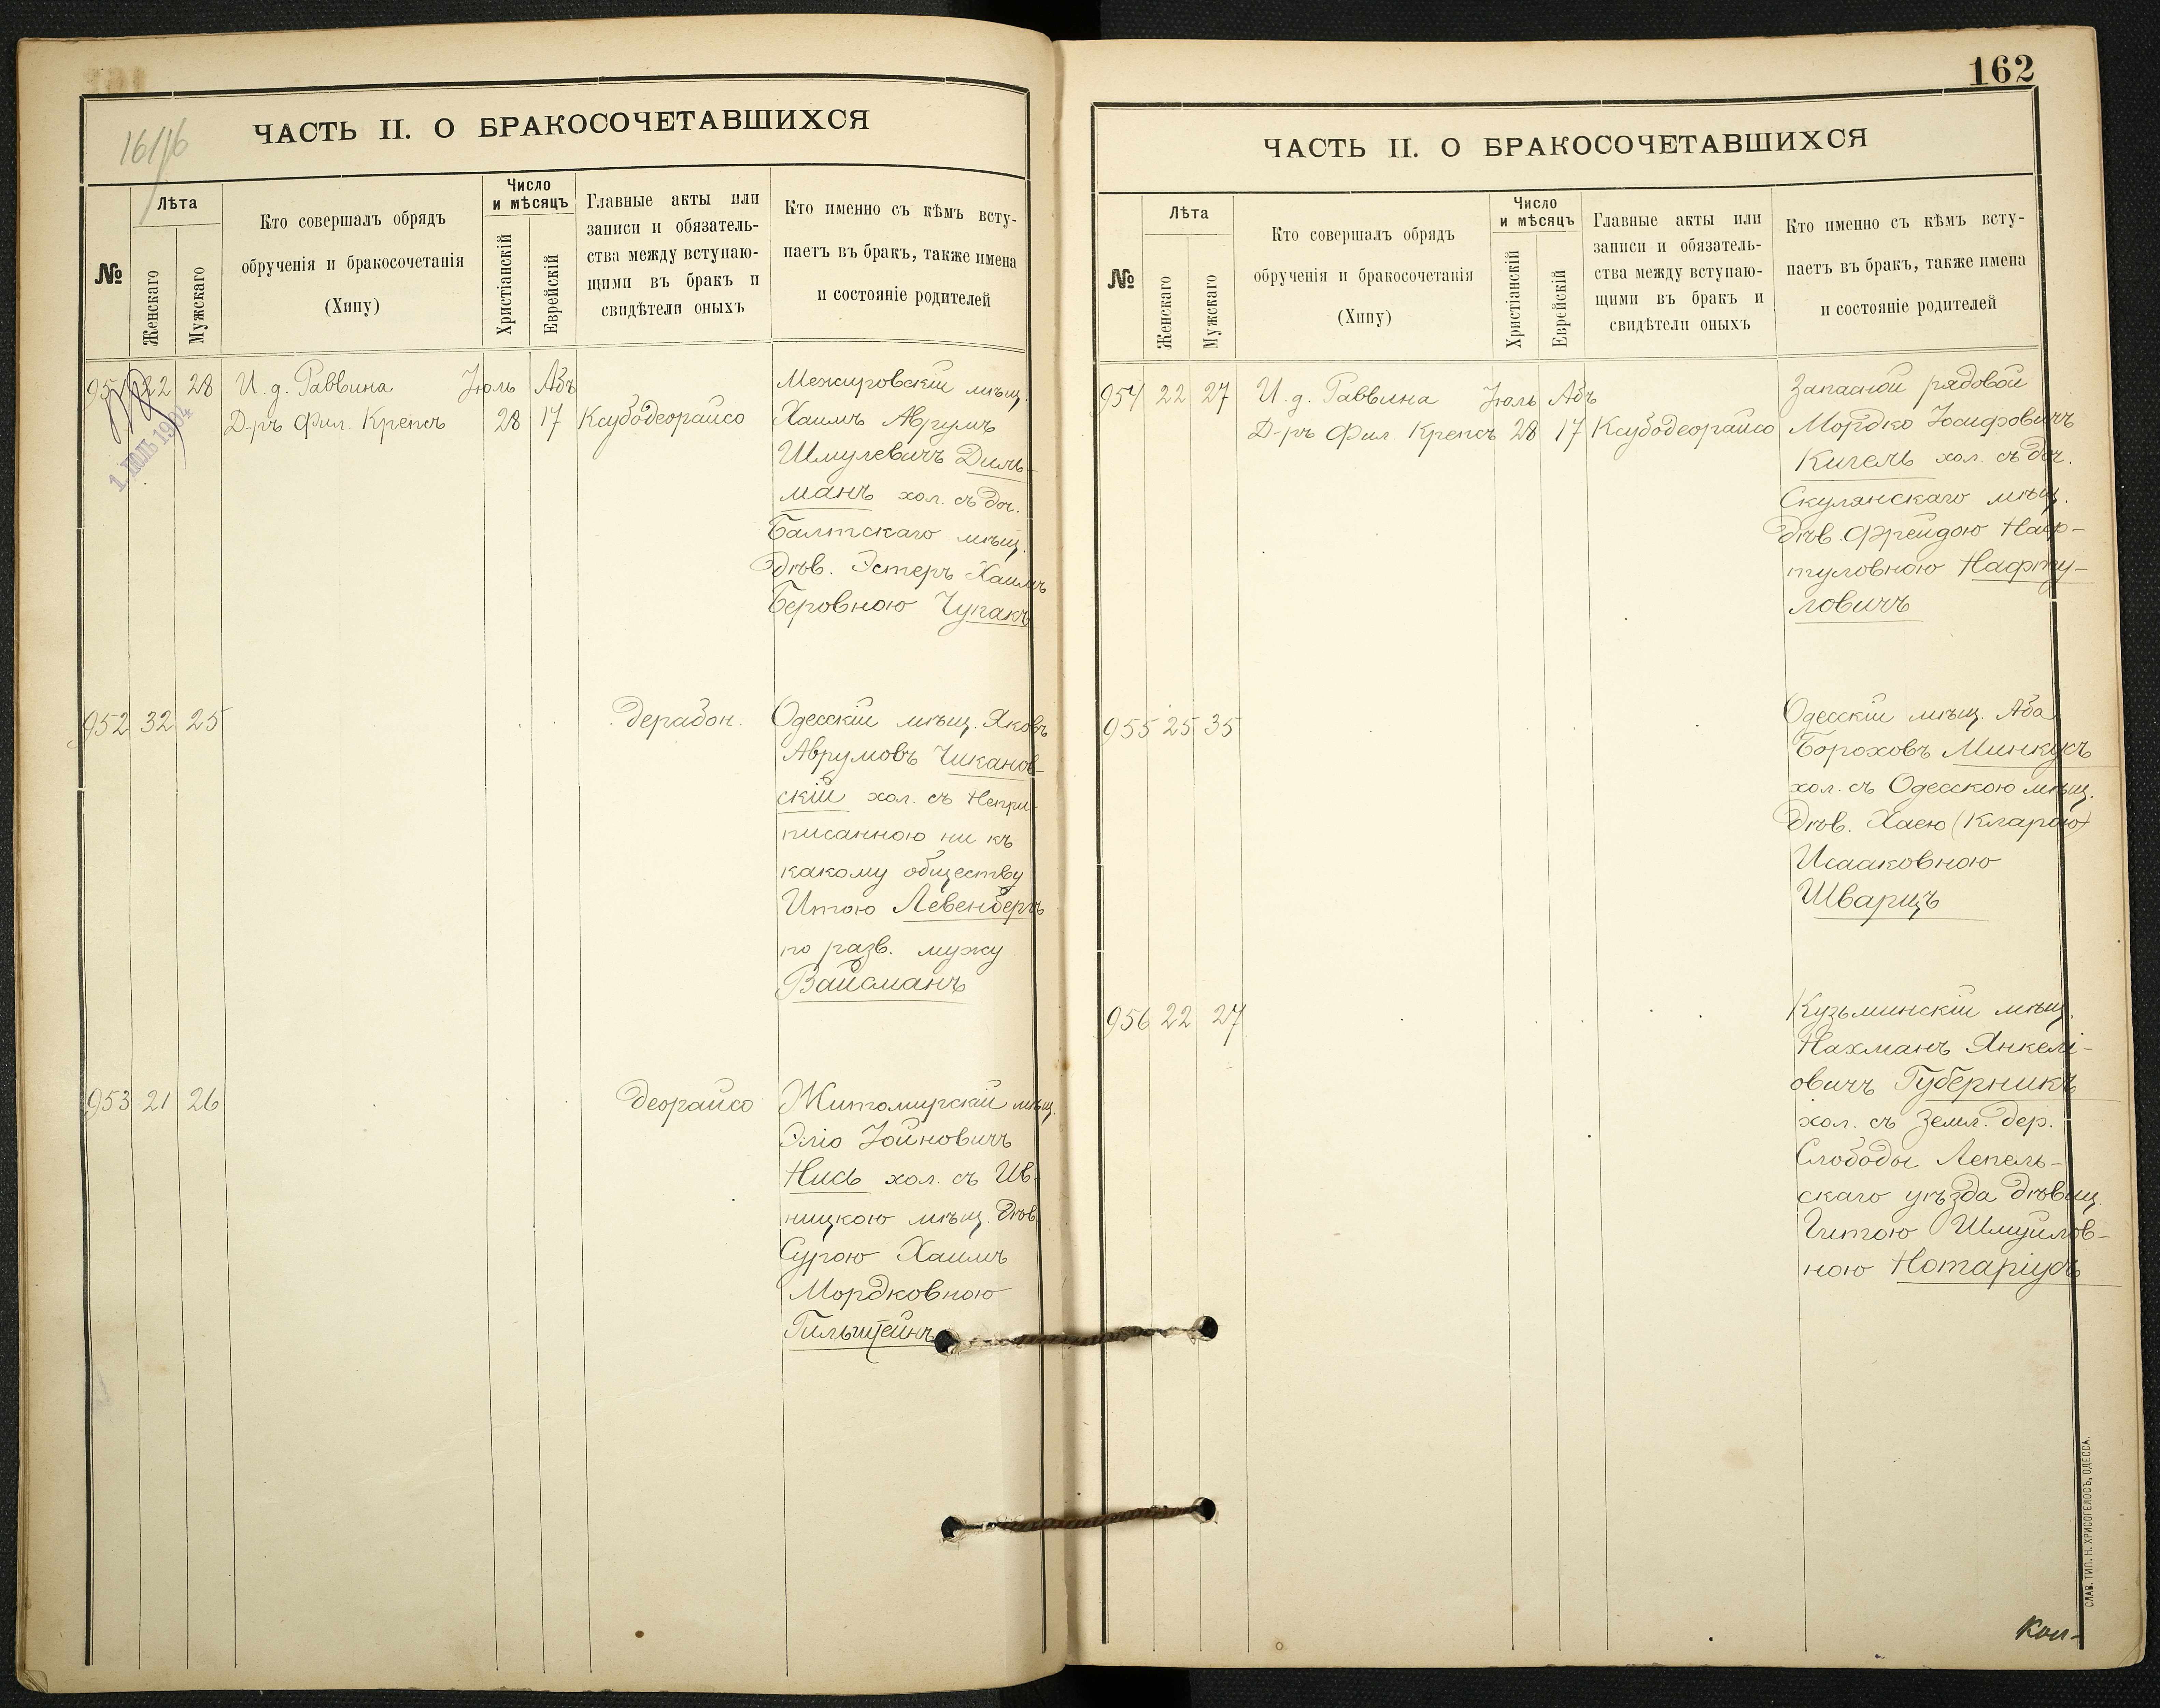 161/16
ЧАСТЬ II. О БРАКОСОЧЕТАВШИХСЯ
№
Лѣта
Женскаго
Мужскаго
Кто совершалъ обрядъ
обрученія и бракосочетанія
(Хипу)
Число
и мѣсяцъ
Христіанскій
Еврейскій
Главные акты или
записи и обязатель-
ства между вступаю-
щими въ бракъ и
свидѣтели оныхъ
Кто именно съ кѣмъ всту-
паетъ въ бракъ, также имена
и состояніе родителей
951 22 28 И. д. Раввина Іюль Абъ
Д-ръ Фил. Крепсъ 28 17 Ксубодеорайсо
1. ІЮЛЬ 1904
Межировскій мѣщ.
Хаимъ Аврумъ
Шмулевичъ Диль-
манъ хол. съ доч.
Балтскаго мѣщ.
дѣв. Эстеръ Хаимъ
Беровною Чупакъ
952 32 25 дерабон.
Одесскій мѣщ. Яковъ
Аврумовъ Чиканов-
скій хол. съ Непри-
писанною ни къ
какому обществу
Итою Левенбергъ
по разв. мужу
Вайсманъ
953 21 26 деорайсо
Житомирскій мѣщ.
Эліо Іойновичъ
Нись хол. съ Ив-
ницкою мѣщ. дѣв.
Сурою Хаимъ
Мордковною
Гильштейнъ
162
ЧАСТЬ II. О БРАКОСОЧЕТАВШИХСЯ
№
Лѣта
Женскаго
Мужскаго
Кто совершалъ обрядъ
обрученія и бракосочетанія
(Хипу)
Число
и мѣсяцъ
Христіанскій
Еврейскій
Главные акты или
записи и обязатель-
ства между вступаю-
щими въ бракъ и
свидѣтели оныхъ
Кто именно съ кѣмъ всту-
паетъ въ бракъ, также имена
и состояніе родителей
954 22 27 И. д. Раввина Іюль Абъ
Д-ръ Фил. Крепсъ 28 17 Ксубодеорайсо
Запасной рядовой
Мордко Іосифовичъ
Кигель хол. съ доч.
Скулянскаго мѣщ.
дѣв. Фрейдою Наф-
туловною Нафту-
ловичъ
955 25 35
Одесскій мѣщ. Аба
Бороховъ Минкусъ
хол. съ Одесскою мѣщ.
дѣв. Хаею (Кларою)
Исааковною
Шварцъ
956 22 27
Кузьминскій мѣщ.
Нахманъ Янкелі-
овичъ Губерникъ
хол. съ Земл. дер.
Слободы Лепель-
скаго уѣзда дѣвиц.
Гитою Шмуилов-
ною Нотаріусъ
СЛАВ. ТИП. Н. ХРИСОГЕЛОСЪ, ОДЕССА.